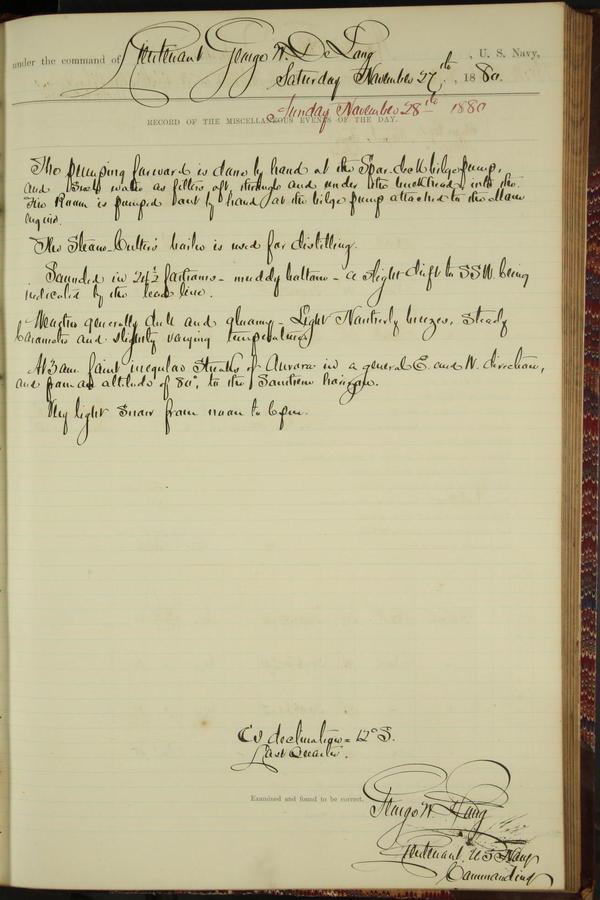 under the command of Lieutenant George W. De Long, U. S. Navy,
Saturday November 27th, 1880.
Sunday November 28th 1880
RECORD OF THE MISCELLANEOUS EVENTS OF THE DAY.
The pumping forward is done by hand at the Spar-deck bilge pump,
and such water as filters aft, through and under the bulkhead into the
Fire Room is pumped out by hand at the bilge pump attached to the Main
engine.
The Steam-Cutter's boiler is used for distilling.
Sounded in 24½ fathoms - muddy bottom - a slight drift to SSW. being
indicated by the lead line.
Weather generally dull and gloomy - Light Northerly breezes, Steady
barometer and slightly varying temperatures
At 3 am faint irregular Streaks of Aurora in a general E. and W. direction,
and from an altitude of 80°, to the Southern horizon.
Very light Snow from noon to 6 pm.
declination = 12° S.
Last Quarter.
Examined and found to be correct.
George W. De Long
Lieutenant, U S Navy
Commanding